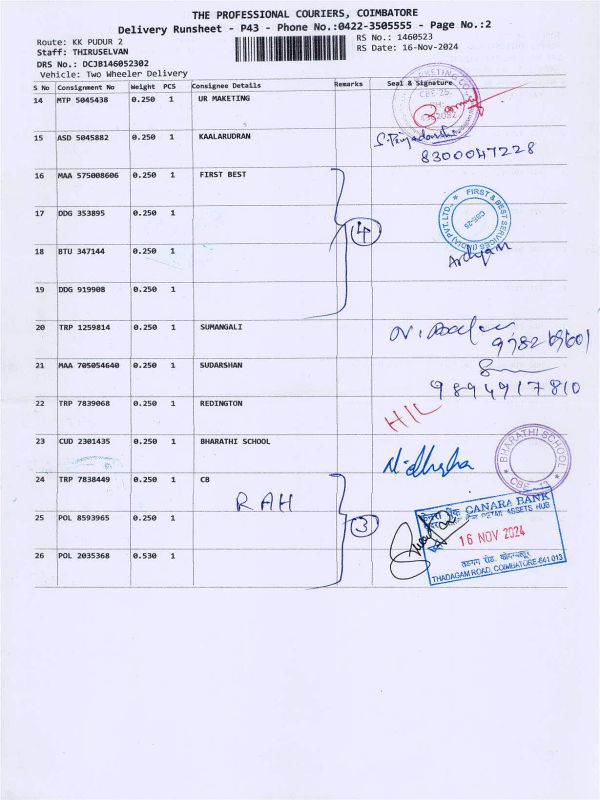 THE PROFESSIONAL COURIERS, COIMBATORE
Delivery Runsheet - P43 - Phone No.:0422-3505555 - Page No.:2
Route: KK PUDUR 2
Staff: THIRUSELVAN
RS No.: 1460523
RS Date: 16-Nov-2024
DRS No.: DCJB146052302
Vehicle: Two Wheeler Delivery
S No Consignment No Weight PCS Consignee Details Remarks Seal & Signature
14 MTP 5045438 0.250 1 UR MAKETING
15 ASD 5045882 0.250 1 KAALARUDRAN
S. Priyadarshi
8300047228
16 MAA 575008606 0.250 1 FIRST BEST
17 DDG 353895 0.250 1
4
FIRST & BEST SERVICES (INDIA) PVT. LTD.,
CBE-25
18 BTU 347144 0.250 1
19 DDG 919908 0.250 1
20 TRP 1259814 0.250 1 SUMANGALI
21 MAA 705054640 0.250 1 SUDARSHAN
9894917810
22 TRP 7839068 0.250 1 REDINGTON
HIL
23 CUD 2301435 0.250 1 BHARATHI SCHOOL
BHARATHI SCHOOL
24 TRP 7838449 0.250 1 CB
RAH
CANARA BANK
RETAIL ASSETS HUB
25 POL 8593965 0.250 1
3
16 NOV 2024
26 POL 2035368 0.530 1
THADAGAM ROAD, COIMBATORE-641 013